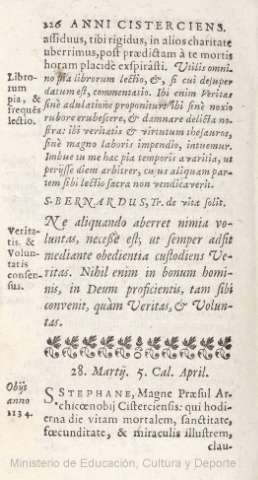 126 ANNI CISTERCIENS.
assiduus, tibi rigidus, in alios charitate
uberrimus, post prædictam à te mortis
horam placidè exspirasti. Utilis omni-
no pia librorum lectio, &, si cui desuper
datum est, commentatio. Ibi enim Veritas
sinè adulatione proponitur: Ibi sinè noxio
rubore erubescere, & damnare delicta no-
stra: ibi veritatis & virtutum thesauros,
sinè magno laboris impendio, intuemur.
Imbue tu me hac pia temporis avaritia, ut
perijsse diem arbitrer, cujus aliquam par-
tem sibi lectio sacra non vendicaverit.
Libro-
rum
pia, &
frequẽs
lectio.
S. BERNARDUS, Tr. de vita solit.
Ne aliquando aberret nimia vo-
luntas, necesse est, ut semper adsit
mediante obedientia custodiens Ve-
ritas. Nihil enim in bonum homi-
nis, in Deum proficientis, tam sibi
convenit, quàm Veritas, & Volun-
tas.
Verita-
tis. &
Volun-
tatis
consen-
sus.
28. Martij. 5. Cal. April.
Obijt
anno
1134.
S. STEPHANE, Magne Præsul Ar-
chicœnobij Cisterciensis: qui hodi-
erna die vitam mortalem, sanctitate,
fœcunditate, & miraculis illustrem,
clau-
Ministerio de Educación, Cultura y Deporte